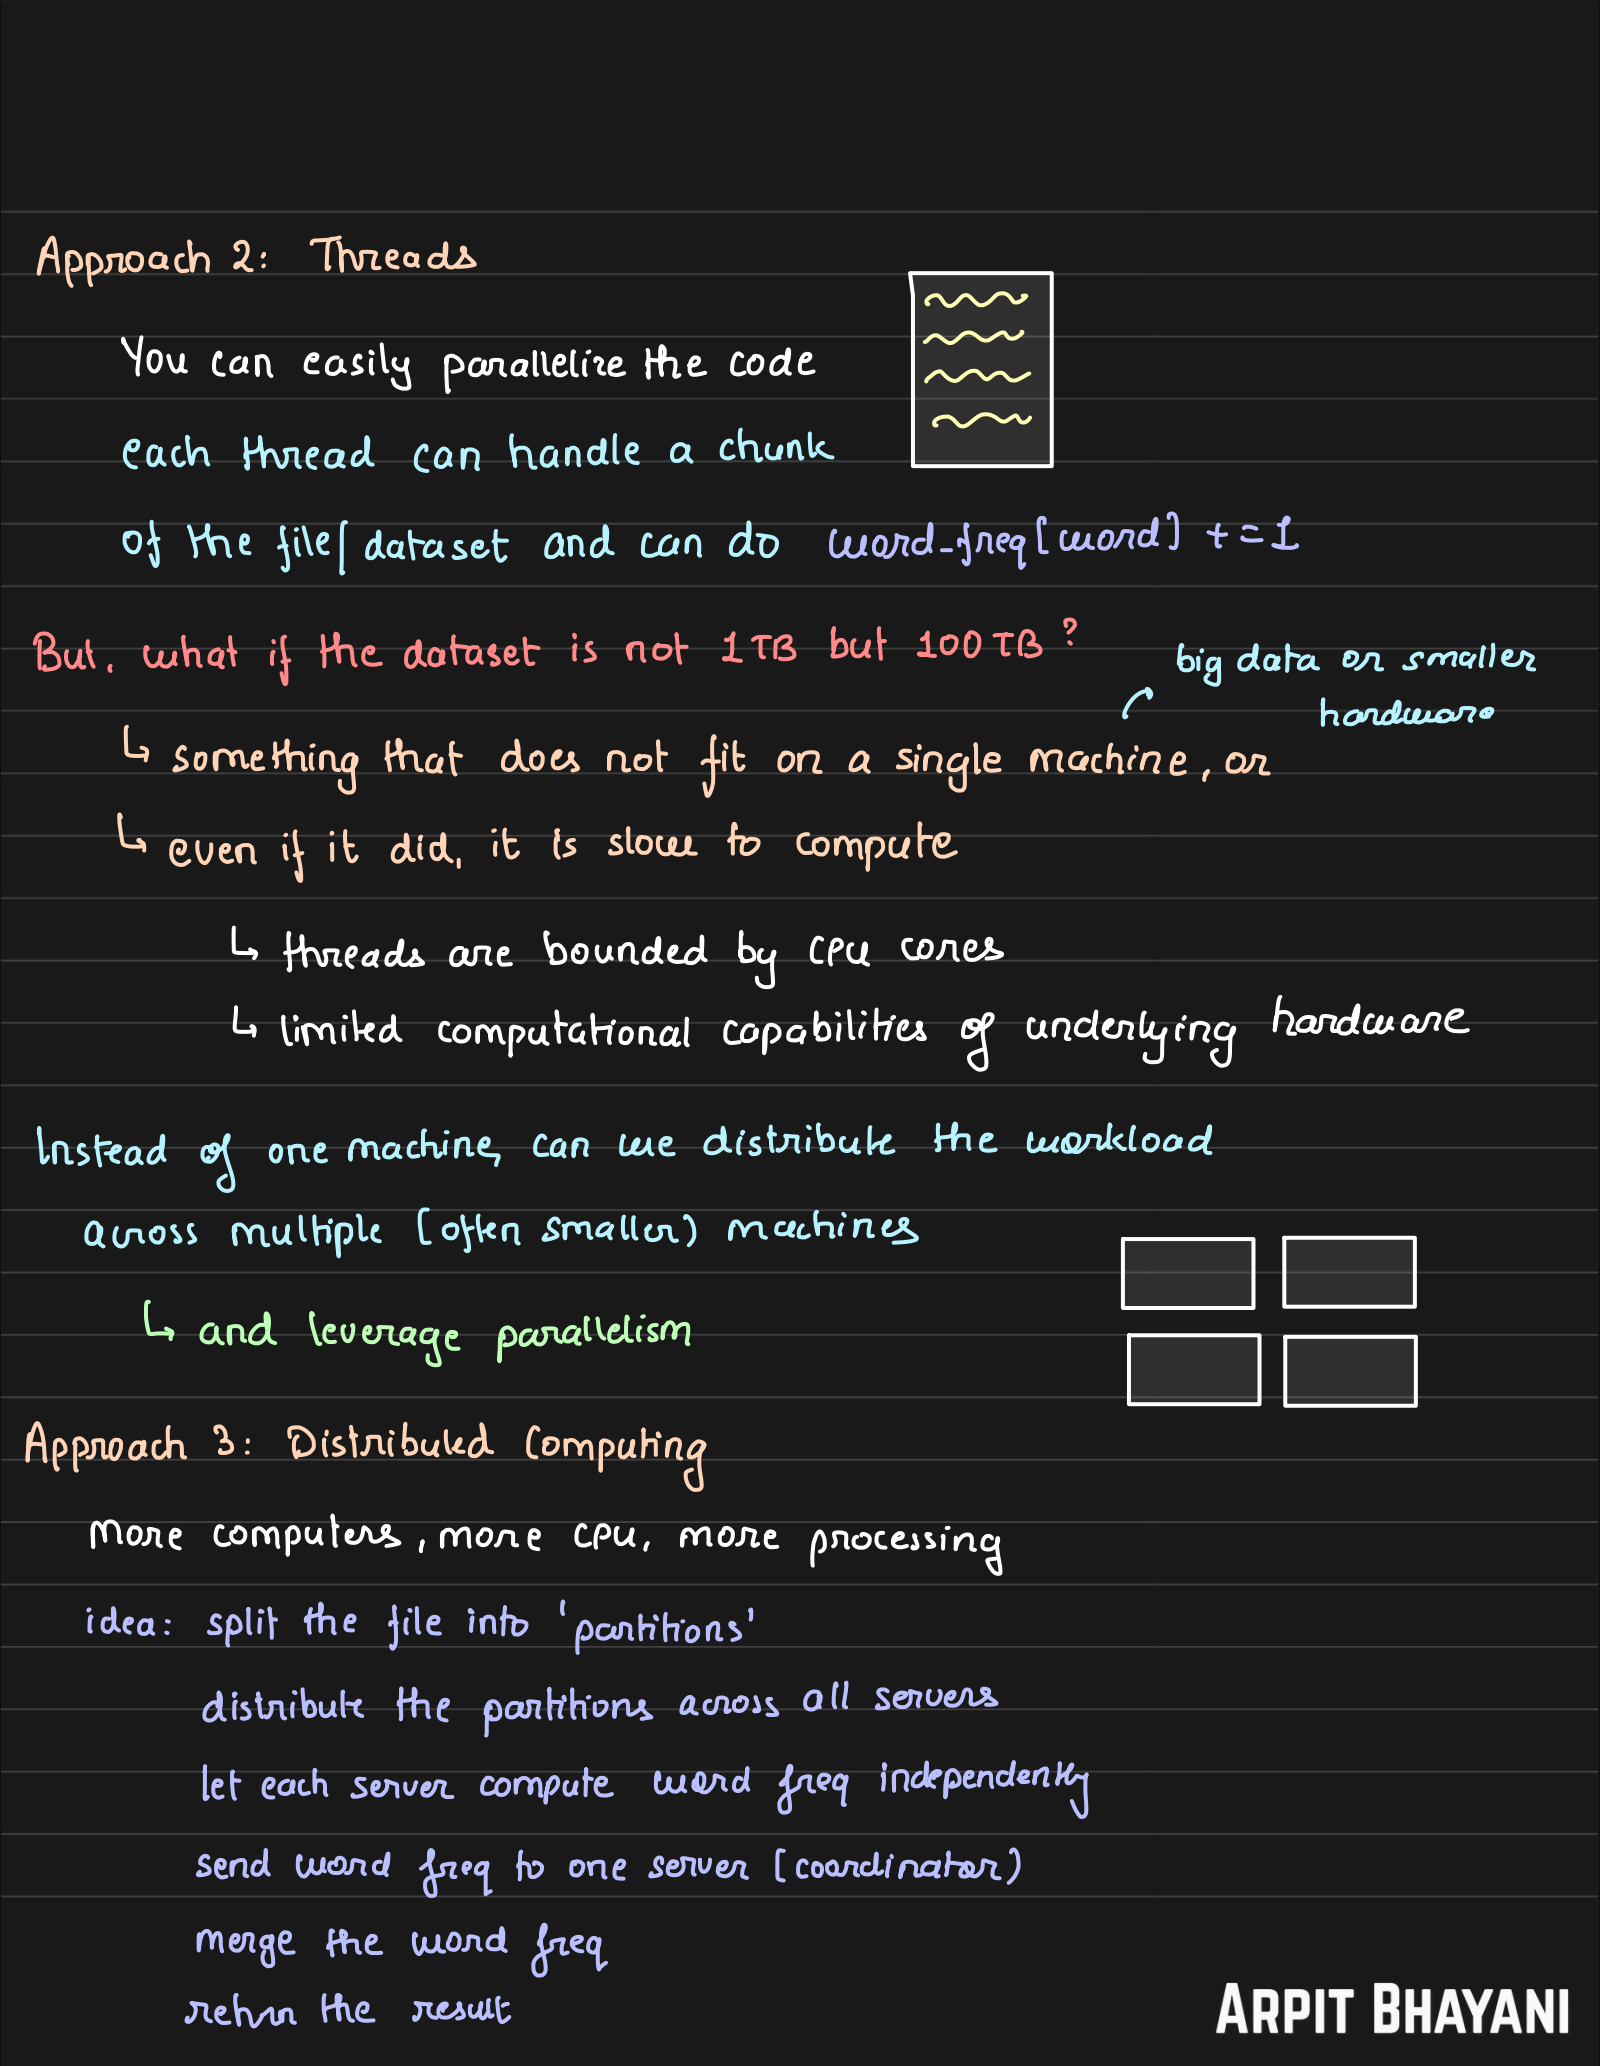 Approach 2: Threads
You can easily parallelize the code
each thread can handle a chunk
of the file/dataset and can do word_freq[word] += 1
But, what if the dataset is not 1TB but 100TB?
big data or smaller
hardware
↳ something that does not fit on a single machine, or
↳ even if it did, it is slow to compute
↳ threads are bounded by CPU cores
↳ limited computational capabilities of underlying hardware
Instead of one machine, can we distribute the workload
across multiple (often smaller) machines
↳ and leverage parallelism
Approach 3: Distributed Computing
More computers, more CPU, more processing
idea: split the file into 'partitions'
distribute the partitions across all servers
let each server compute word freq independently
send word freq to one server (coordinator)
merge the word freq
return the result
ARPIT BHAYANI